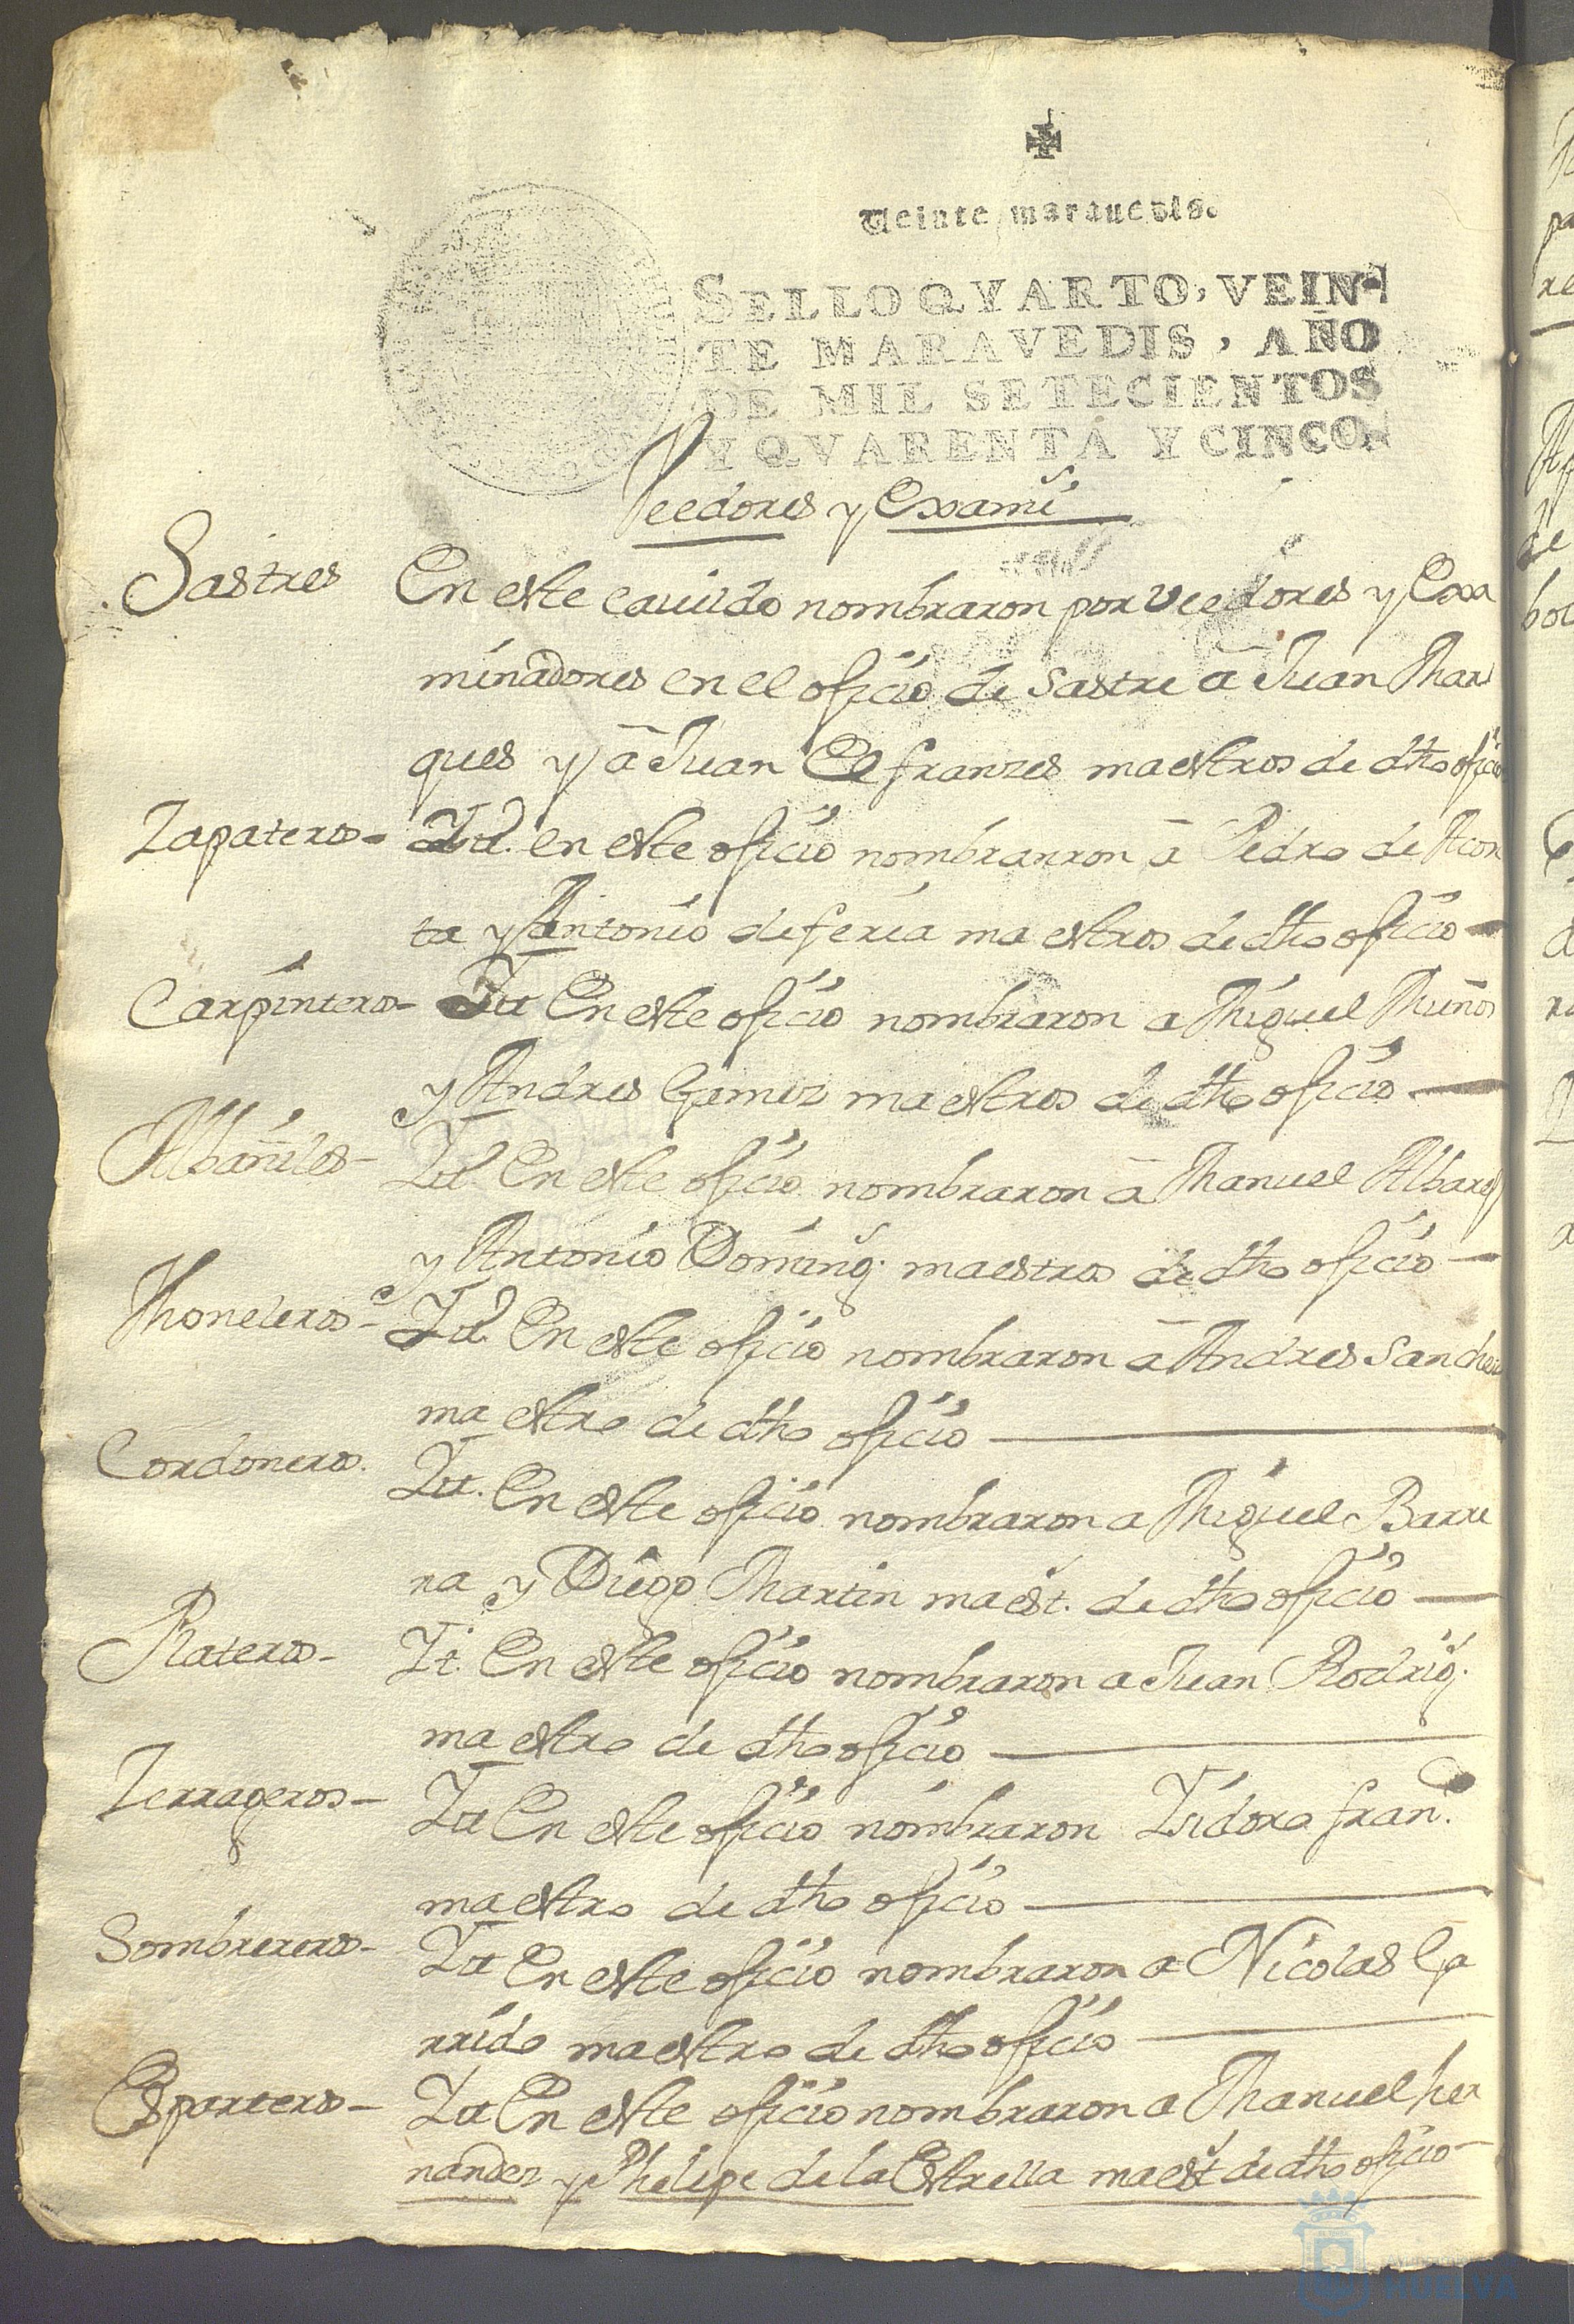 Veinte maravedis.
SELLO QVARTO, VEIN-
TE MARAVEDIS, AÑO
DE MIL SETECIENTOS
Y QVARENTA Y CINCO.
Veedores y Examẽ
Sastres En este cauildo nombraron por veedores y Exa
minadores en el oficio de sastre a Juan Mar
ques y a Juan El franzes maestros de dho oficio
Zapateros- It. en este oficio nombrarron a Pedro de Acos
ta y Antonio de feria maestros de dho oficio
Carpinteros- It En este oficio nombraron a Miguel Muños
y Andres Gomez maestros de dho oficio
Albañiles- It En este oficio nombraron a Manuel Albares
y Antonio Doming. maestros de dho oficio
Thoneleros- It. En este oficio nombraron a Andres Sanches
maestro de dho oficio
Cordoneros. It. En este oficio nombraron a Miguel Barre
ra y Diego Martin maest. de dho oficio
Plateros- It. En este oficio nombraron a Juan Rodrig.
maestro de dho oficio
Zerrageros- It En este oficio nombraron Isidoro fran.co
maestro de dho oficio
Sombrereros- It En este oficio nombraron a Nicolas Ga
rrido maestro de dho oficio
Esparteros- It En este oficio nombraron a Manuel her
nandez y Phelipe de la Estrella maest de dho oficio
HUELVA